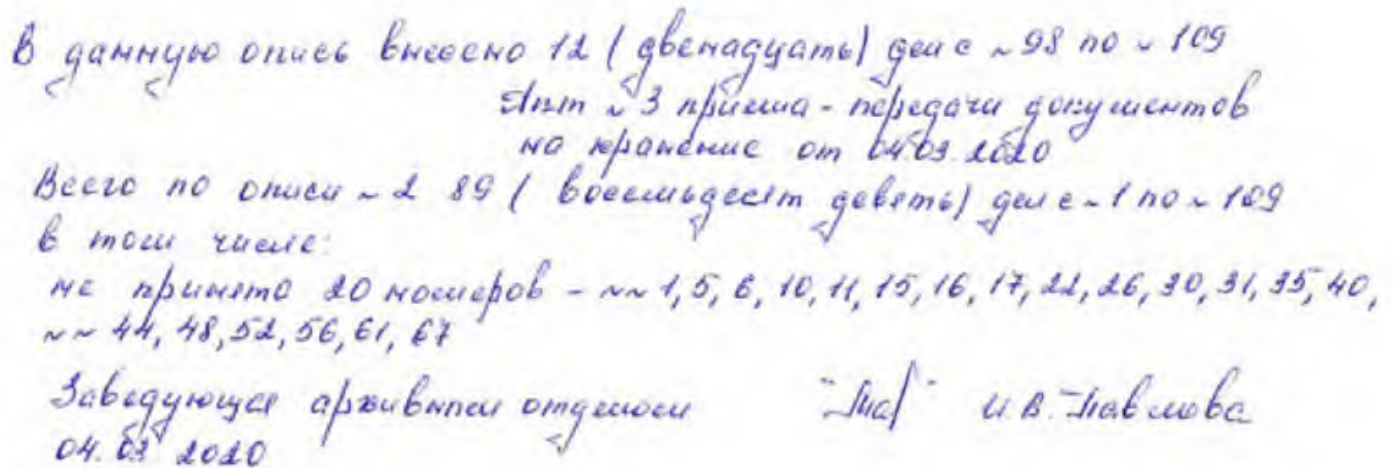 В данную опись внесено 12 (двенадцать) дел с ~ 98 по ~ 109
Акт ~ 3 приема - передачи документов
на хранение от 04.03.2020
Всего по описи ~ 2 89 (восемьдесят девять) дел с ~ 1 по ~ 109
в том числе:
не принято 20 номеров - ~~ 1, 5, 6, 10, 11, 15, 16, 17, 22, 26, 30, 31, 35, 40,
~~ 44, 48, 52, 56, 61, 67
Заведующая архивным отделом И.В. Павлова
04.03 2020